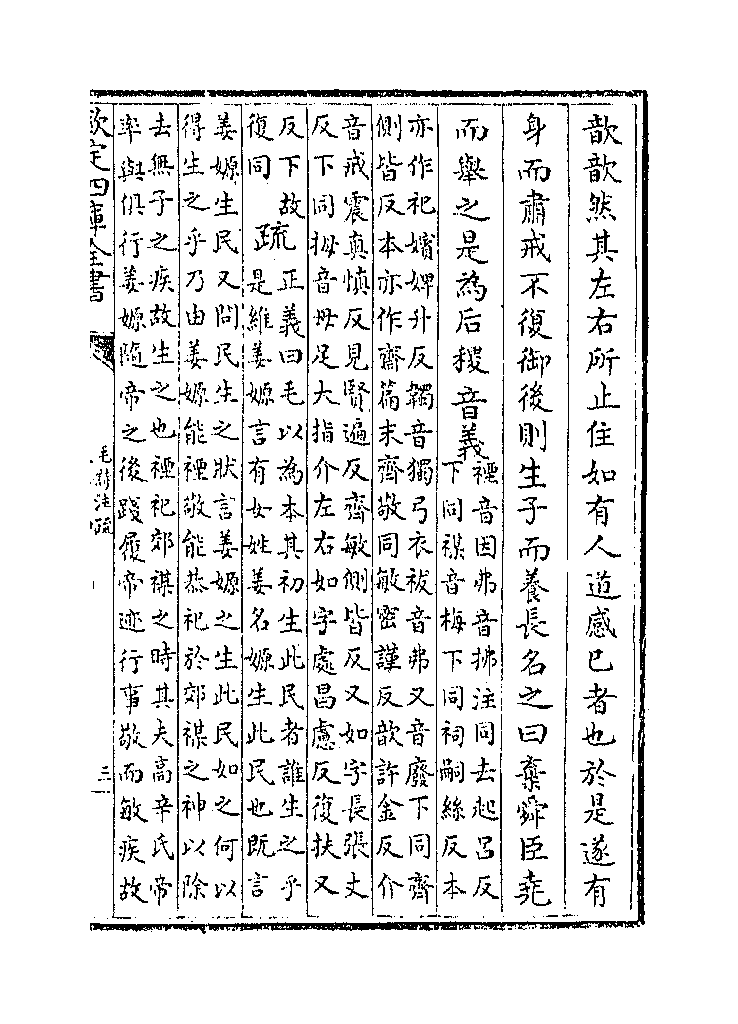 歆歆然其左右所止住如有人道感已者也於是遂有
身而肅戒不復御後則生子而養長名之曰棄舜臣堯
而舉之是為后稷音義
禋音因弗音拂注同去起呂反
下同禖音梅下同祠嗣絲反本
亦作祀嬪婢升反韣音獨弓衣祓音弗又音廢下同齊
側皆反本亦作齋篇末齊敬同敏密謹反歆許金反介
音戒震真慎反見賢遍反齊敏側皆反又如字長張丈
反下同拇音母足大指介左右如字處昌慮反復扶又
反下故
復同
疏
正義曰毛以為本其初生此民者誰生之乎
是維姜嫄言有女姓姜名嫄生此民也既言
姜嫄生民又問民生之狀言姜嫄之生此民如之何以
得生之乎乃由姜嫄能禋敬能恭祀於郊禖之神以除
去無子之疾故生之也禋祀郊禖之時其夫高辛氏帝
率與俱行姜嫄隨帝之後踐履帝迹行事敬而敏疾故
欽定四庫全書
毛詩注疏
三